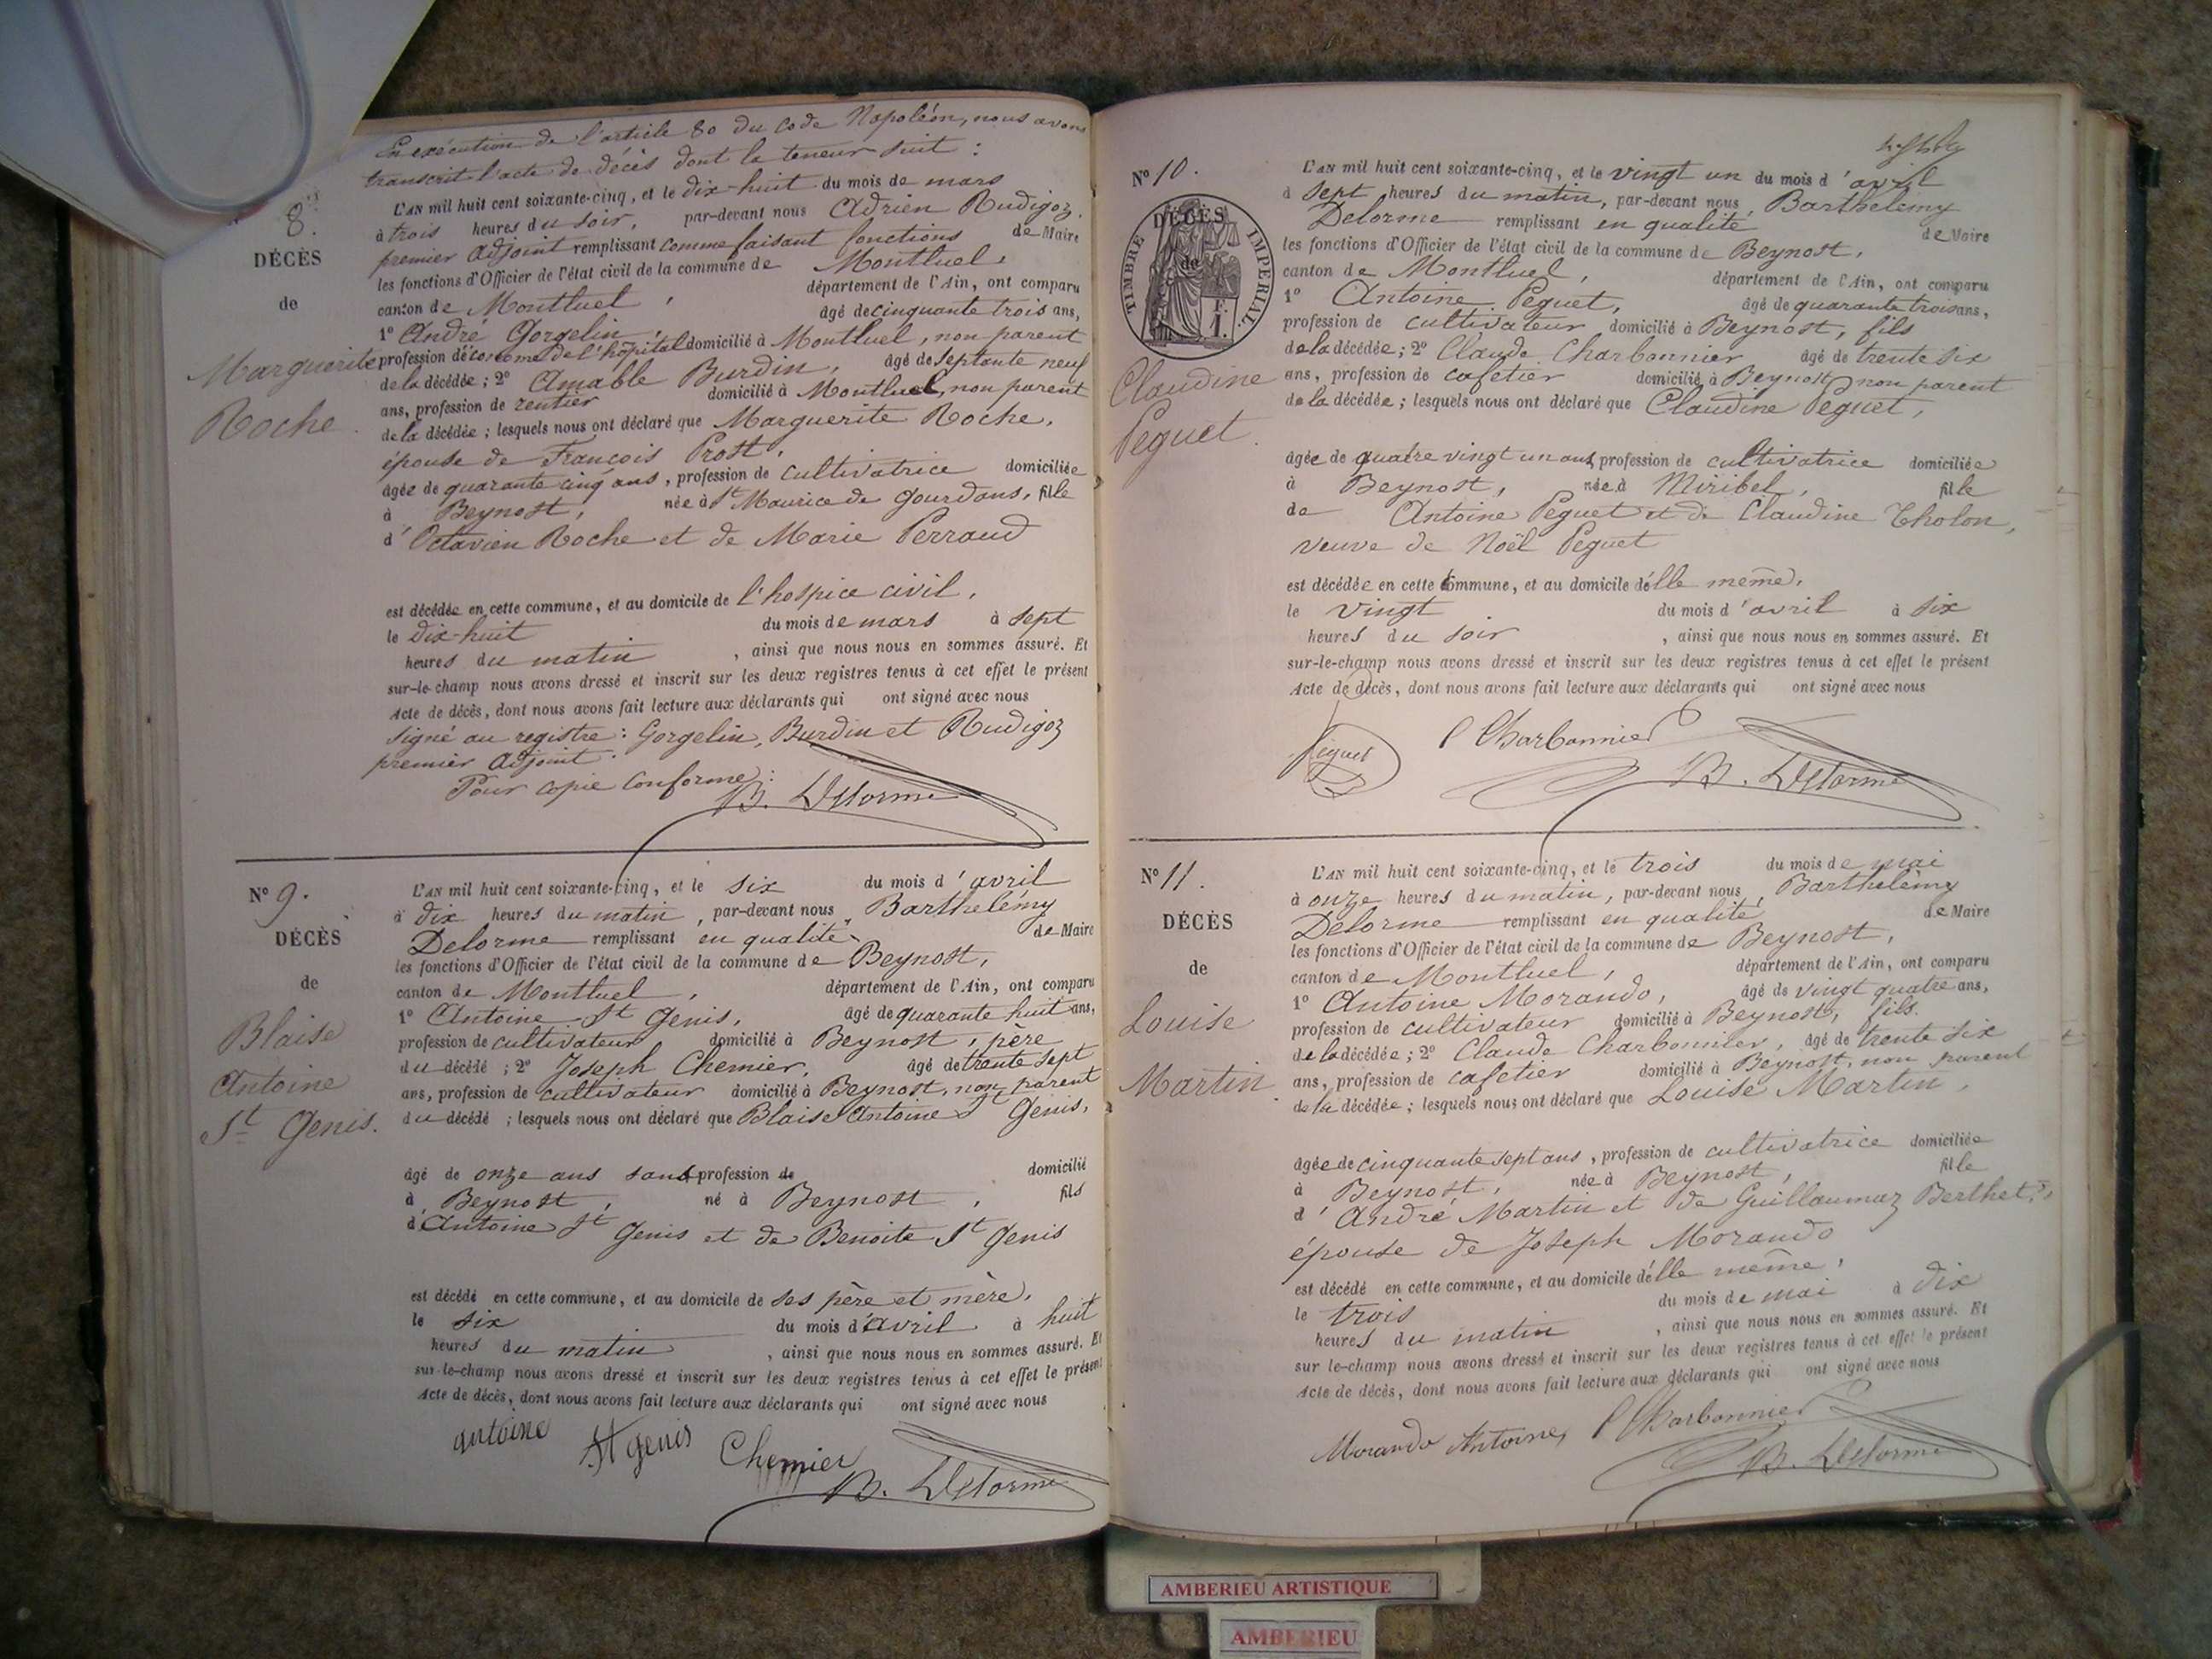 En exécution de l'article 80 du code Napoléon, nous avons
transcrit l'acte de décès dont la teneur suit :
8.
DÉCÈS
de
Marguerite
Roche.
L'AN mil huit cent soixante-cinq, et le dix-huit du mois de mars
à trois heures du soir, par-devant nous Adrien Rudigoz,
premier adjoint remplissant comme faisant fonctions de Maire
les fonctions d'Officier de l'état civil de la commune de Montluel,
canton de Montluel, département de l'Ain, ont comparu
1° André Gorgelin, âgé de cinquante trois ans,
profession d'économe de l'hôpital domicilié à Montluel, non parent
de la décédée ; 2° Amable Burdin, âgé de septante neuf
ans, profession de rentier domicilié à Montluel, non parent
de la décédée ; lesquels nous ont déclaré que Marguerite Roche,
épouse de François Prost,
âgée de quarante cinq ans, profession de cultivatrice domiciliée
à Beynost, née à St Maurice de gourdans, fille
d'Octavien Roche et de Marie Perraud
est décédée en cette commune, et au domicile de l'hospice civil,
le dix-huit du mois de mars à sept
heures du matin, ainsi que nous nous en sommes assuré. Et
sur-le-champ nous avons dressé et inscrit sur les deux registres tenus à cet effet le présent
Acte de décès, dont nous avons fait lecture aux déclarants qui ont signé avec nous
signé au registre : Gorgelin, Burdin et Rudigoz
premier adjoint.
Pour copie conforme :
B. Delorme
N° 9.
DÉCÈS
de
Blaise
Antoine
St Genis.
L'AN mil huit cent soixante-cinq, et le six du mois d'avril
à dix heures du matin, par-devant nous, Barthélemy
Delorme remplissant en qualité de Maire
les fonctions d'Officier de l'état civil de la commune de Beynost,
canton de Montluel, département de l'Ain, ont comparu
1° Antoine St Genis, âgé de quarante huit ans,
profession de cultivateur domicilié à Beynost, père
du décédé ; 2° Joseph Chemier, âgé de trente sept
ans, profession de cultivateur domicilié à Beynost, non parent
du décédé ; lesquels nous ont déclaré que Blaise Antoine St Genis,
âgé de onze ans sans profession de domicilié
à Beynost, né à Beynost, fils
d'Antoine St Genis et de Benoite St Genis
est décédé en cette commune, et au domicile de ses père et mère,
le six du mois d'avril à huit
heures du matin, ainsi que nous nous en sommes assuré. Et
sur-le-champ nous avons dressé et inscrit sur les deux registres tenus à cet effet le présent
Acte de décès, dont nous avons fait lecture aux déclarants qui ont signé avec nous
antoine St genis Chemier
B. Delorme
N° 10.
TIMBRE IMPERIAL
DÉCÈS
de
Claudine
Peguet.
L'AN mil huit cent soixante-cinq, et le vingt un du mois d'avril
à sept heures du matin, par-devant nous, Barthélemy
Delorme remplissant en qualité de Maire
les fonctions d'Officier de l'état civil de la commune de Beynost,
canton de Montluel, département de l'Ain, ont comparu
1° Antoine Peguet, âgé de quarante trois ans,
profession de cultivateur domicilié à Beynost, fils
de la décédée ; 2° Claude Charbonnier âgé de trente six
ans, profession de cafetier domicilié à Beynost, non parent
de la décédée ; lesquels nous ont déclaré que Claudine Peguet,
âgée de quatre vingt un ans, profession de cultivatrice domiciliée
à Beynost, née à Miribel, fille
de Antoine Peguet et de Claudine Tholon,
veuve de Noël Peguet
est décédée en cette commune, et au domicile d'elle même,
le vingt du mois d'avril à six
heures du soir, ainsi que nous nous en sommes assuré. Et
sur-le-champ nous avons dressé et inscrit sur les deux registres tenus à cet effet le présent
Acte de décès, dont nous avons fait lecture aux déclarants qui ont signé avec nous
Peguet C Charbonnier
B. Delorme
N° 11.
DÉCÈS
de
Louise
Martin.
L'AN mil huit cent soixante-cinq, et le trois du mois de mai
à onze heures du matin, par-devant nous, Barthélemy
Delorme remplissant en qualité de Maire
les fonctions d'Officier de l'état civil de la commune de Beynost,
canton de Montluel, département de l'Ain, ont comparu
1° Antoine Morando, âgé de vingt quatre ans,
profession de cultivateur domicilié à Beynost, fils
de la décédée ; 2° Claude Charbonnier, âgé de trente six
ans, profession de cafetier domicilié à Beynost, non parent
de la décédée ; lesquels nous ont déclaré que Louise Martin,
âgée de cinquante sept ans, profession de cultivatrice domiciliée
à Beynost, née à Beynost, fille
d'André Martin et de Guillaumaz Berthet,
épouse de Joseph Morando
est décédé en cette commune, et au domicile d'elle même,
le trois du mois de mai à dix
heures du matin, ainsi que nous nous en sommes assuré. Et
sur le-champ nous avons dressé et inscrit sur les deux registres tenus à cet effet le présent
Acte de décès, dont nous avons fait lecture aux déclarants qui ont signé avec nous
Morando Antoine, C Charbonnier
B. Delorme
AMBERIEU ARTISTIQUE
AMBERIEU